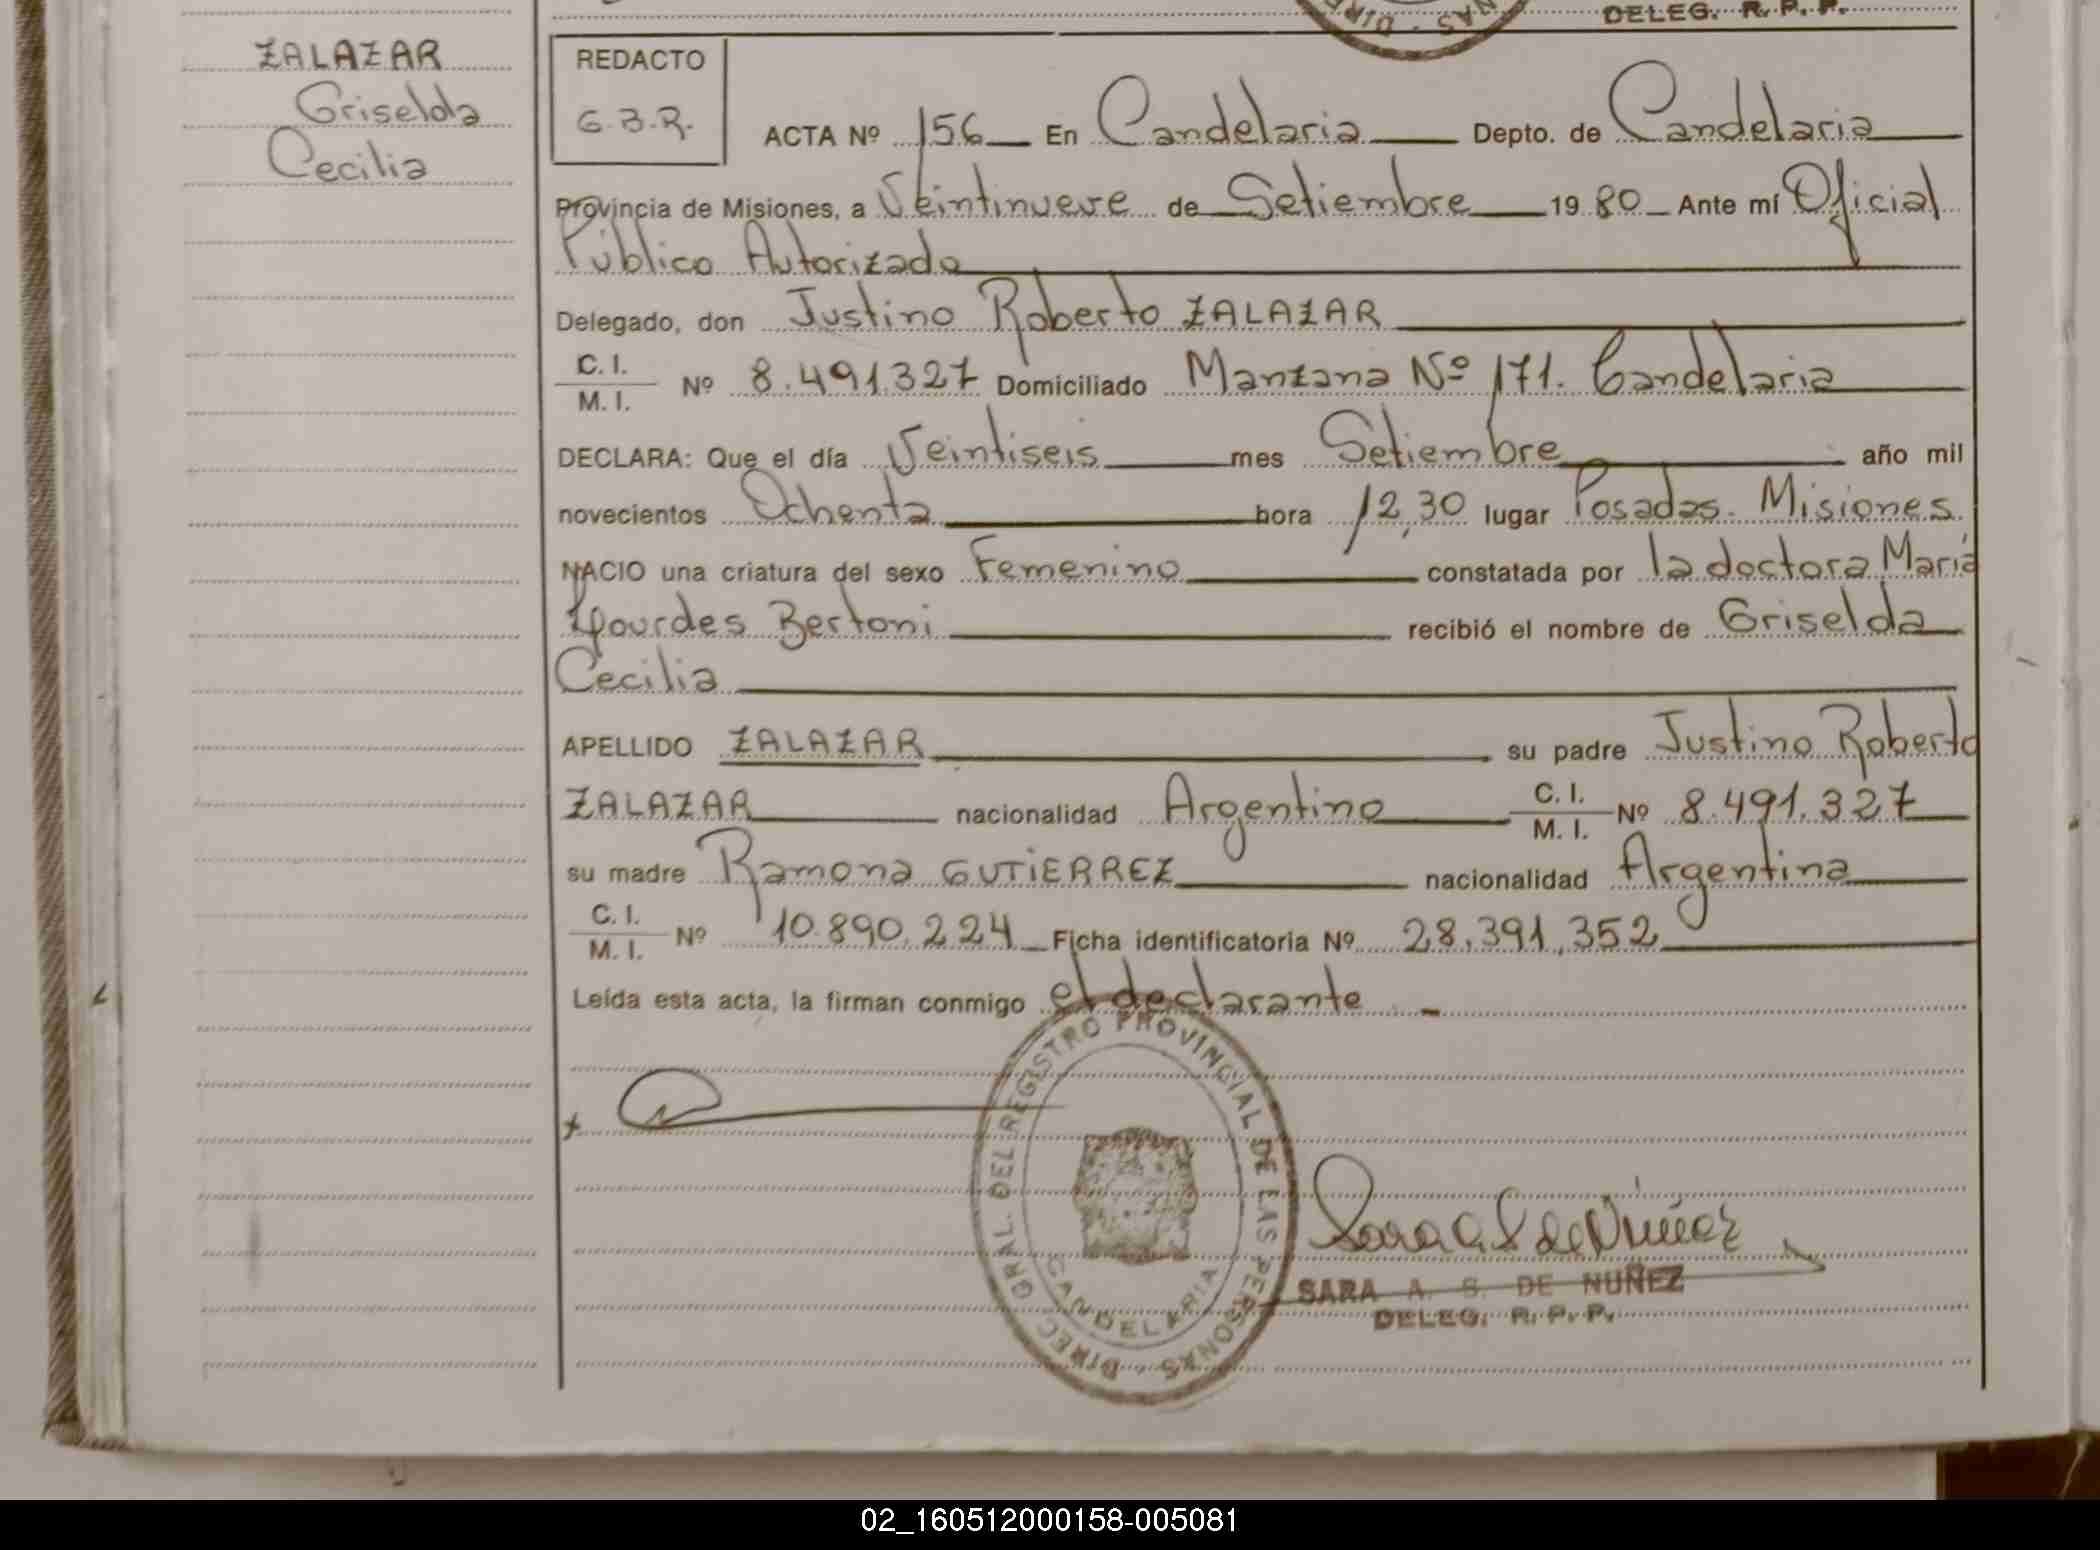 DELEG. R. P. P.
ZALAZAR
Griselda
Cecilia
REDACTO
G.B.R.
ACTA Nº 156 En Candelaria Depto. de Candelaria
Provincia de Misiones, a Veintinueve de Setiembre 1980 Ante mí Oficial
Público Autorizado
Delegado, don Justino Roberto ZALAZAR
C. I.
M. I. Nº 8.491.327 Domiciliado Manzana Nº 171. Candelaria
DECLARA: Que el día Veintiseis mes Setiembre año mil
novecientos Ochenta hora 12,30 lugar Posadas. Misiones.
NACIO una criatura del sexo Femenino constatada por la doctora María
Lourdes Bertoni recibió el nombre de Griselda
Cecilia
APELLIDO ZALAZAR su padre Justino Roberto
ZALAZAR nacionalidad Argentino C. I. M. I. Nº 8.491.327
su madre Ramona GUTIERREZ nacionalidad Argentina
C. I.
M. I. Nº 10.890.224 Ficha identificatoria Nº 28.391.352
Leída esta acta, la firman conmigo el declarante.-
DIREC. GRAL. DEL REGISTRO PROVINCIAL DE LAS PERSONAS
CANDELARIA
Sara A S de Nuñez
SARA A. S. DE NUÑEZ
DELEG. R. P. P.
02_160512000158-005081